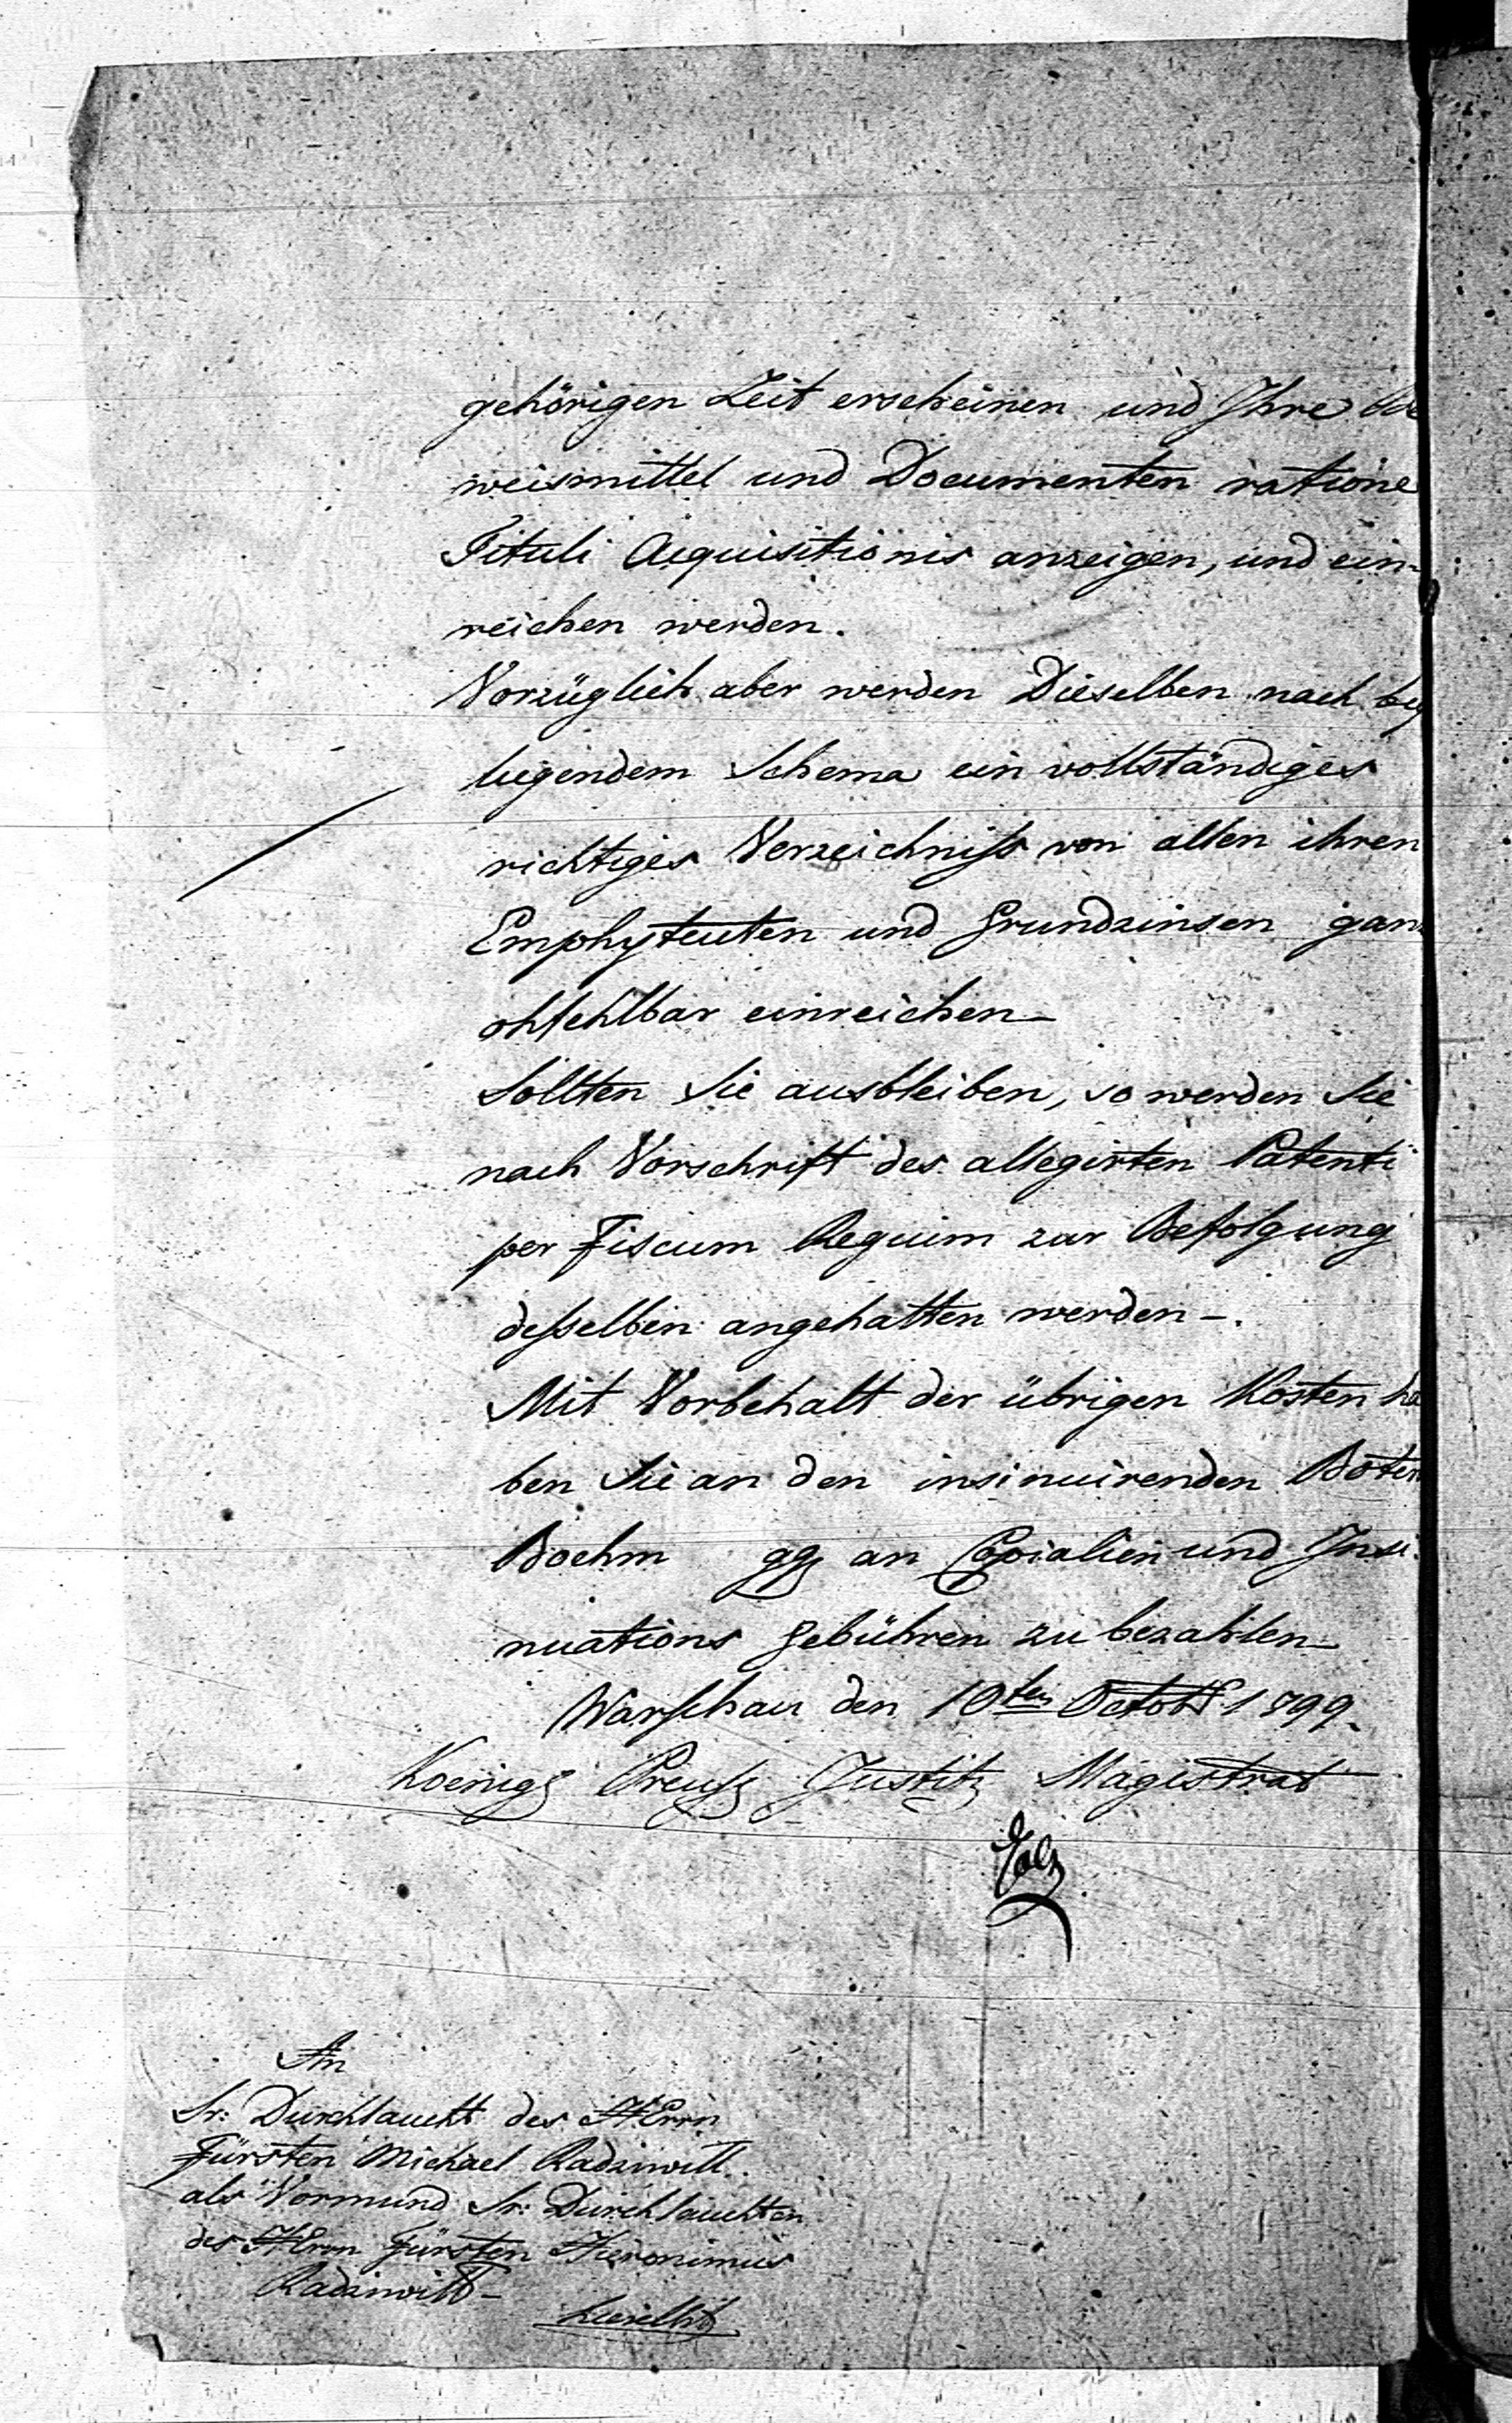 gehörigen Zeit erscheinen und Ihre Be
weismittel und Documenten ratione
Tituli Acquisitionis anzeigen, und ein-
reichen werden.
Vorzüglich aber werden Dieselben nach bey
liegendem Schema ein vollständiges
richtiges Verzeichniſs von allen ihren
Emphyteuten und Grundzinsen gan
ohfehlbar einreichen-
Sollten Sie ausbleiben, so werden Sie
nach Vorschrift des allegirten Patenti
per Fiscum Regium zur Befolgung
deſselben angehalten werden-.
Mit Vorbehalt der übrigen Kosten ha
ben Sie an den insinuirenden Boten
Boehm an Copialien und Insi
nuations Gebühren zu bezahlen-
Warschau den 10ten Octobr 1799.
Koenigl Preuſs Justitz Magistrat
An
Sr: Durchlaucht des HErrn
Fürsten Michael Radziwill
als Vormund Sr: Durchlauchten
des HErrn Fürsten Hieronimus
Radziwill-
hieselbst